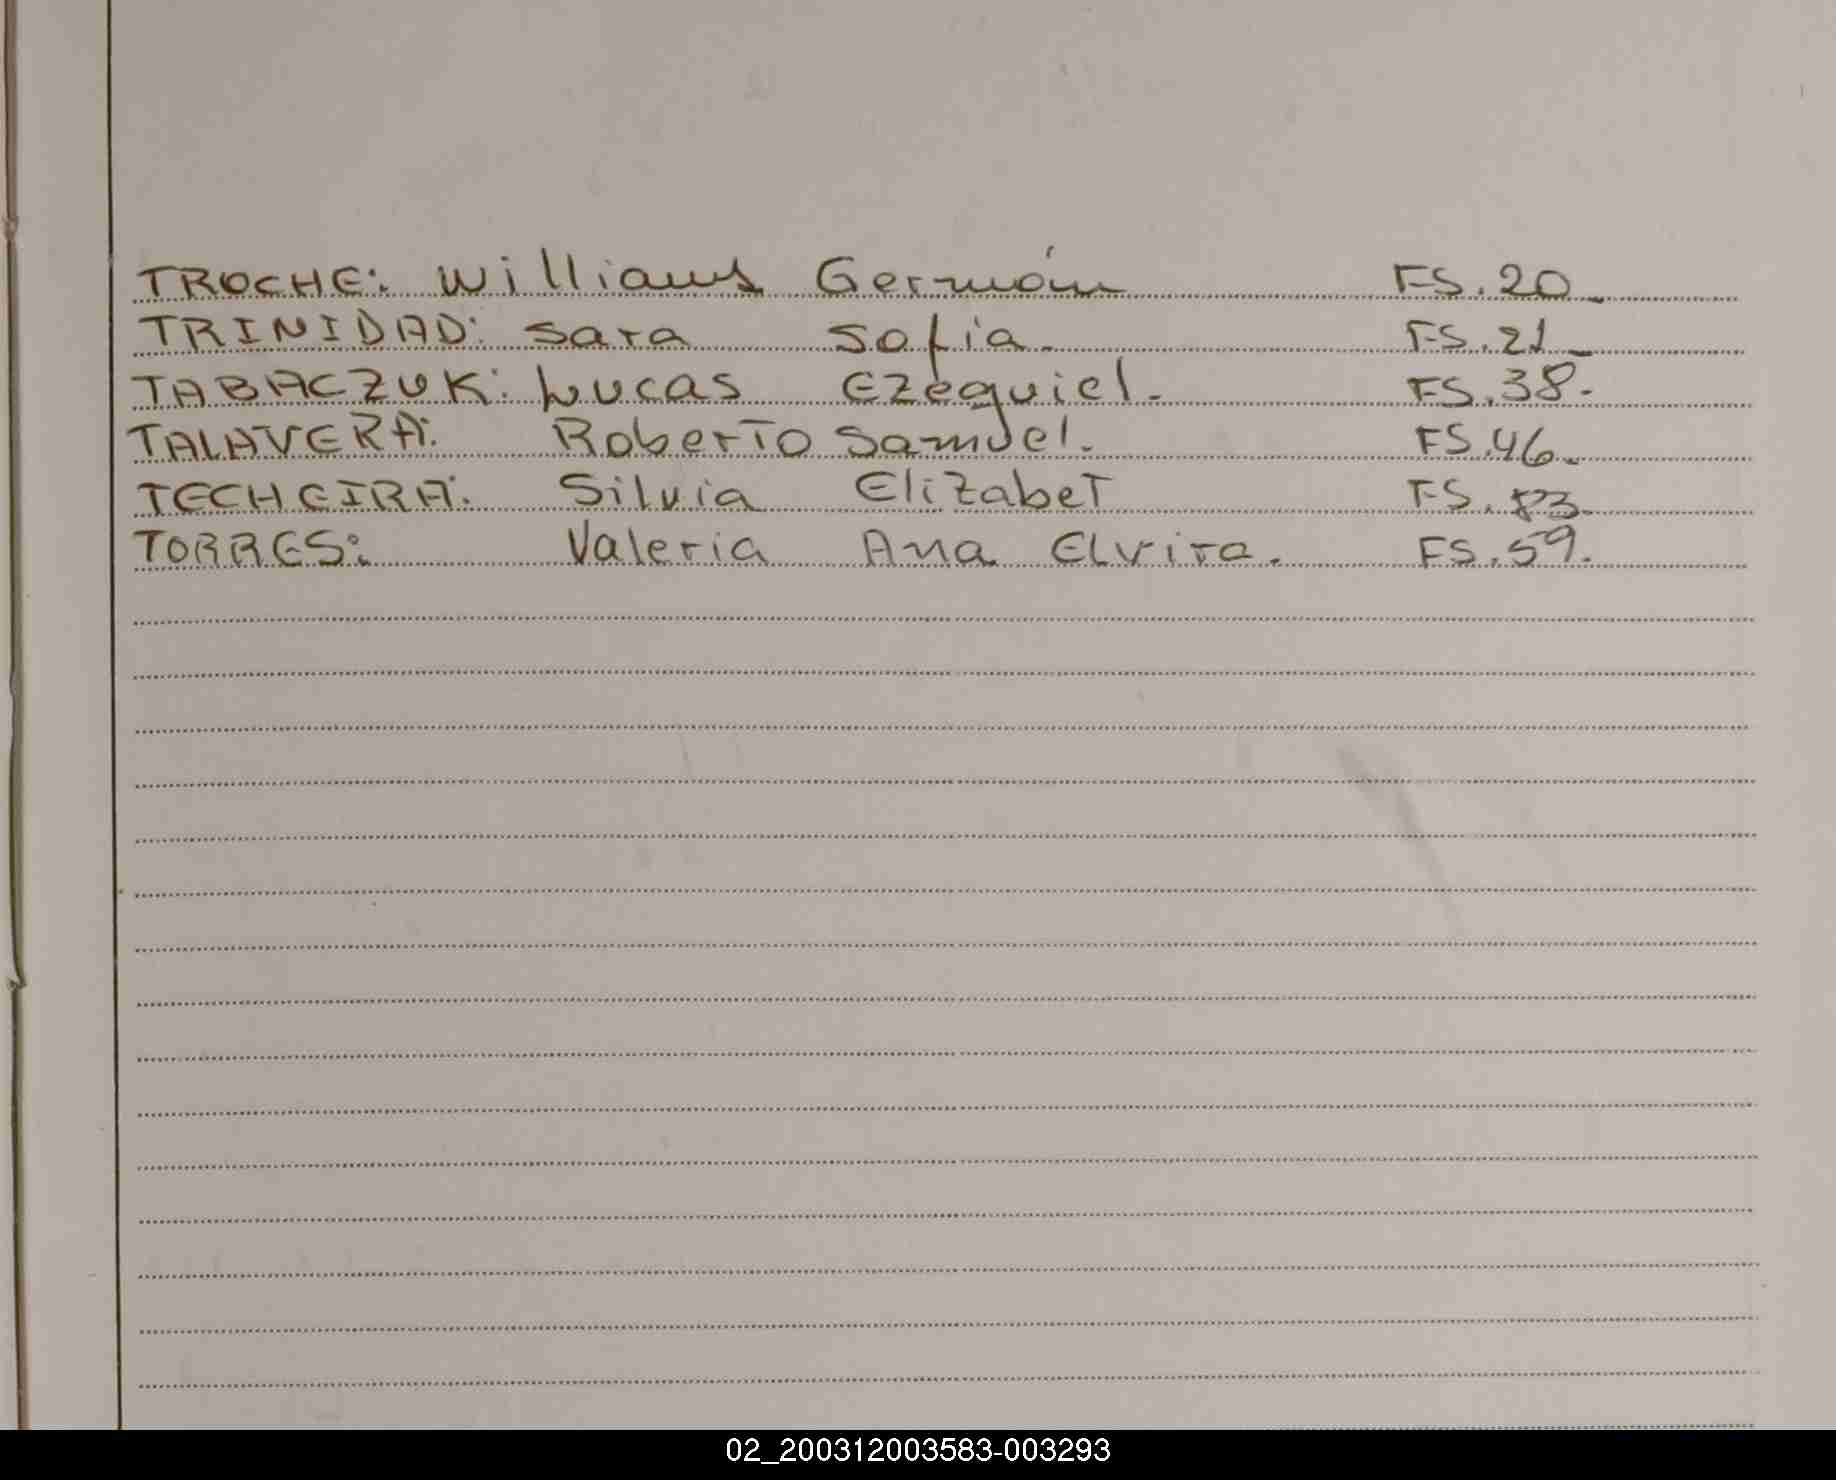 TROCHE: Williams Germán FS.20_
TRINIDAD: Sara Sofia. FS.21_
TABACZUK: Lucas Ezequiel. FS.38.
TALAVERA: Roberto Samuel. FS.46.
TECHEIRA: Silvia Elizabet FS.
TORRES: Valeria Ana Elvira. FS.59.
02_200312003583-003293